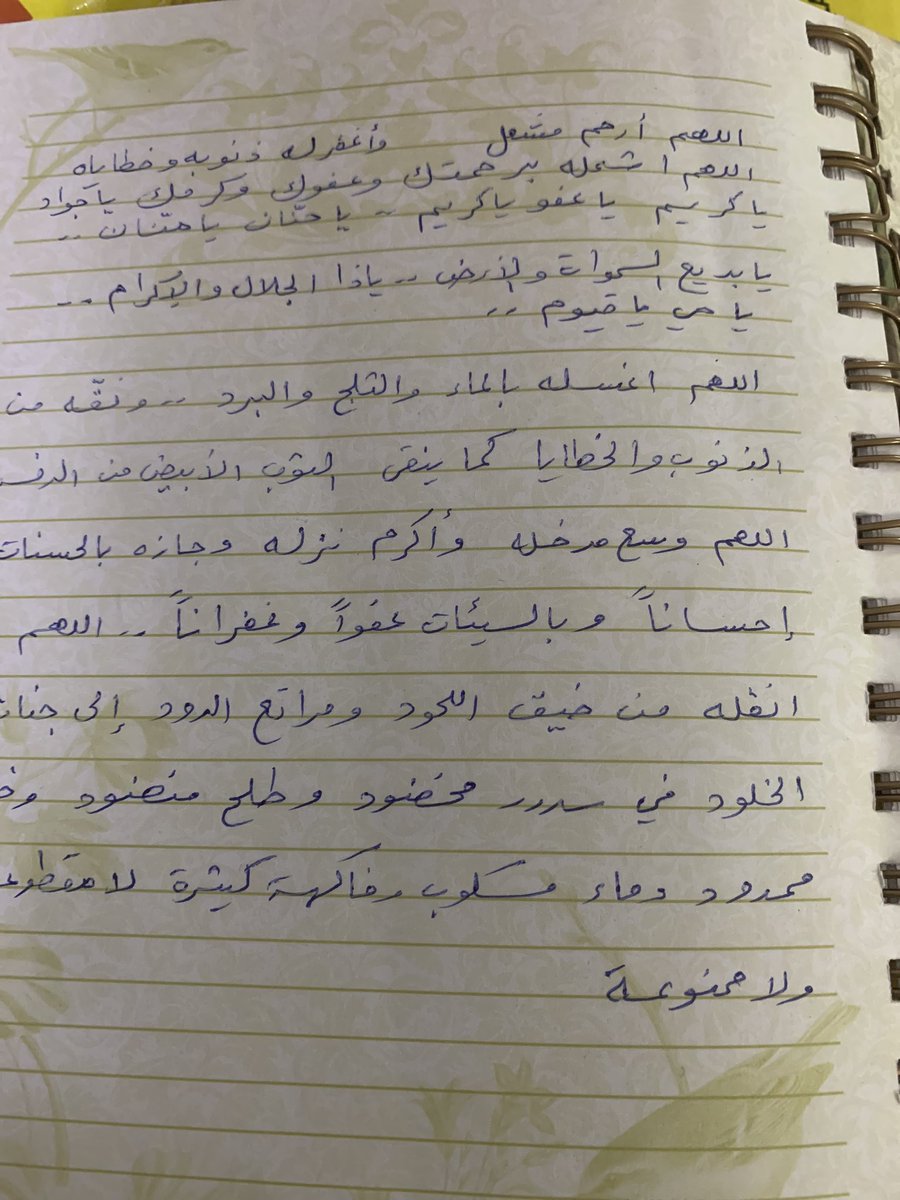 اللهم أرحم مشعل وأغفر له ذنوبه وخطاياه
اللهم اشمله برحمتك وعفوك وكرمك ياجواد
ياكريم ياعفو ياكريم .. ياحنّان ياحنّان ..
يابديع السموات والأرض .. ياذا الجلال والإكرام ..
ياحي ياقيوم ..
اللهم اغسله بالماء والثلج والبرد .. ونقّه من
الذنوب والخطايا كما ينقى الثوب الأبيض من الدنس
اللهم وسع مدخله وأكرم نزله وجازه بالحسنات
إحساناً وبالسيئات عفواً وغفراناً .. اللهم
انقله من ضيق اللحود ومراتع الدود إلى جنات
الخلود في سدر مخضود وطلح منضود
ممدود وماء مسكوب وفاكهة كثيرة لا مقطوعة
ولا ممنوعة